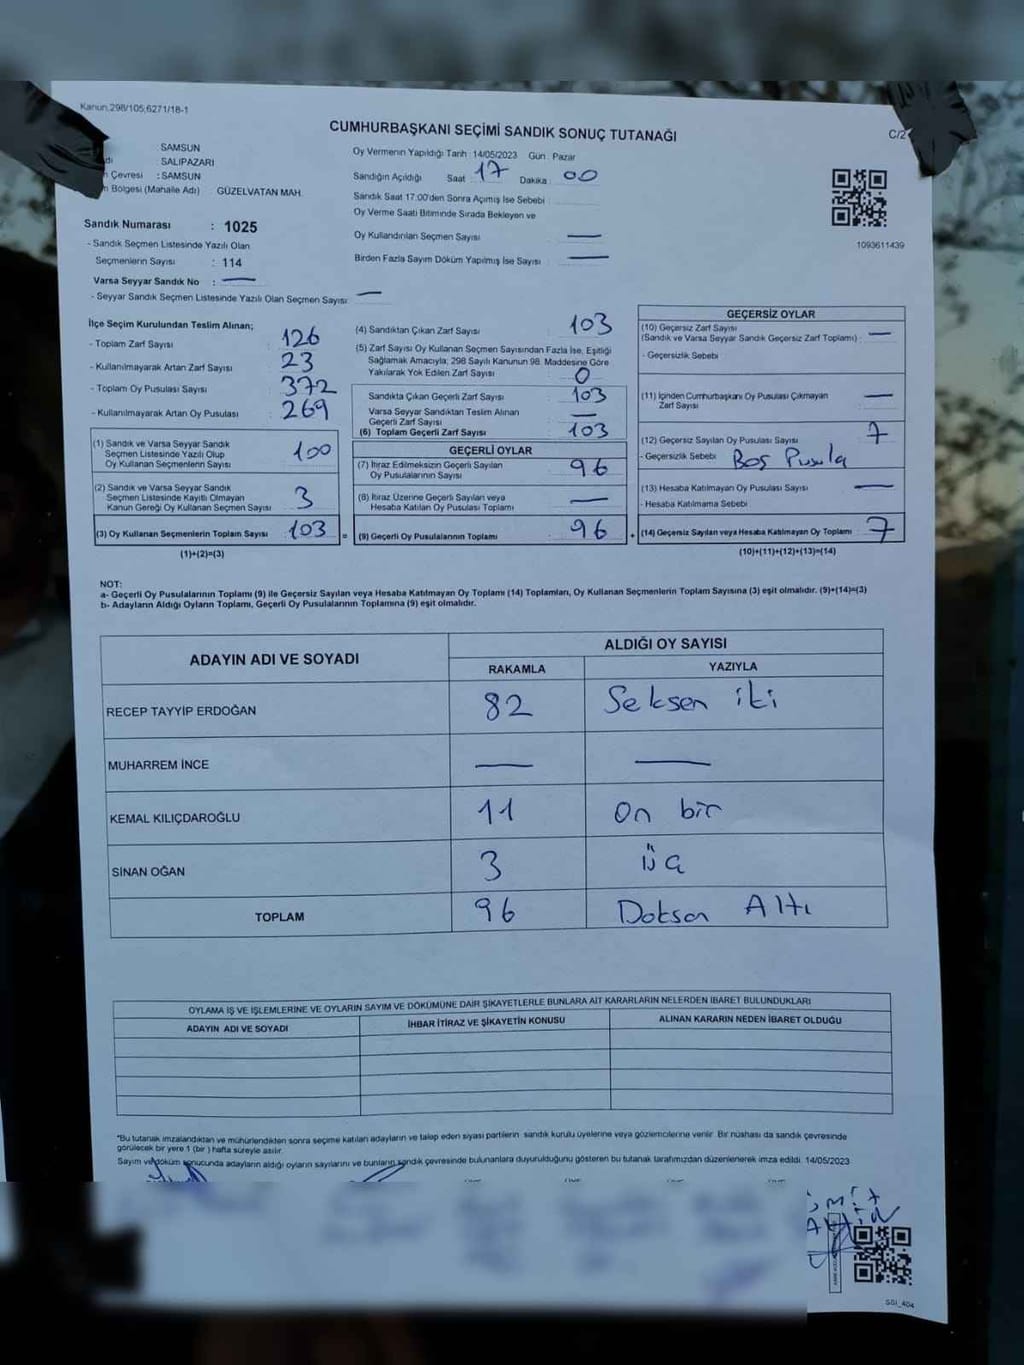 Kanun,298/105,6271/18-1
CUMHURBAŞKANI SEÇİMİ SANDIK SONUÇ TUTANAĞI
C/2
: SAMSUN
: SALIPAZARI
Çevresi : SAMSUN
Bölgesi (Mahalle Adı) : GÜZELVATAN MAH.
Sandık Numarası : 1025
- Sandık Seçmen Listesinde Yazılı Olan
Seçmenlerin Sayısı : 114
Varsa Seyyar Sandık No : —
- Seyyar Sandık Seçmen Listesinde Yazılı Olan Seçmen Sayısı: —
Oy Vermenin Yapıldığı Tarih :14/05/2023 Gün : Pazar
Sandığın Açıldığı Saat : 17 Dakika : 00
Sandık Saat 17:00'den Sonra Açımış İse Sebebi :
Oy Verme Saati Bitiminde Sırada Bekleyen ve
Oy Kullandırılan Seçmen Sayısı : —
Birden Fazla Sayım Döküm Yapılmış İse Sayısı : —
1093611439
İlçe Seçim Kurulundan Teslim Alınan;
- Toplam Zarf Sayısı : 126
- Kullanılmayarak Artan Zarf Sayısı : 23
- Toplam Oy Pusulası Sayısı : 372
- Kullanılmayarak Artan Oy Pusulası : 269
(1) Sandık ve Varsa Seyyar Sandık
Seçmen Listesinde Yazılı Olup
Oy Kullanan Seçmenlerin Sayısı : 100
(2) Sandık ve Varsa Seyyar Sandık
Seçmen Listesinde Kayıtlı Olmayan
Kanun Gereği Oy Kullanan Seçmen Sayısı : 3
(3) Oy Kullanan Seçmenlerin Toplam Sayısı : 103
(1)+(2)=(3)
(4) Sandıktan Çıkan Zarf Sayısı : 103
(5) Zarf Sayısı Oy Kullanan Seçmen Sayısından Fazla İse, Eşitliği
Sağlamak Amacıyla; 298 Sayılı Kanunun 98. Maddesine Göre
Yakılarak Yok Edilen Zarf Sayısı : 0
Sandıkta Çıkan Geçerli Zarf Sayısı : 103
Varsa Seyyar Sandıktan Teslim Alınan
Geçerli Zarf Sayısı : —
(6) Toplam Geçerli Zarf Sayısı : 103
GEÇERLİ OYLAR
(7) İtiraz Edilmeksizin Geçerli Sayılan
Oy Pusulalarının Sayısı : 96
(8) İtiraz Üzerine Geçerli Sayılan veya
Hesaba Katılan Oy Pusulası Toplamı : —
= (9) Geçerli Oy Pusulalarının Toplamı : 96
GEÇERSİZ OYLAR
(10) Geçersiz Zarf Sayısı
(Sandık ve Varsa Seyyar Sandık Geçersiz Zarf Toplamı) : —
- Geçersizlik Sebebi
(11) İçinden Cumhurbaşkanı Oy Pusulası Çıkmayan
Zarf Sayısı : —
(12) Geçersiz Sayılan Oy Pusulası Sayısı : 7
- Geçersizlik Sebebi : Boş Pusula
(13) Hesaba Katılmayan Oy Pusulası Sayısı : —
- Hesaba Katılmama Sebebi
+ (14) Geçersiz Sayılan veya Hesaba Katılmayan Oy Toplamı : 7
(10)+(11)+(12)+(13)=(14)
NOT:
a- Geçerli Oy Pusulalarının Toplamı (9) ile Geçersiz Sayılan veya Hesaba Katılmayan Oy Toplamı (14) Toplamları, Oy Kullanan Seçmenlerin Toplam Sayısına (3) eşit olmalıdır. (9)+(14)=(3)
b- Adayların Aldığı Oyların Toplamı, Geçerli Oy Pusulalarının Toplamına (9) eşit olmalıdır.
ADAYIN ADI VE SOYADI ALDIĞI OY SAYISI
RAKAMLA YAZIYLA
RECEP TAYYİP ERDOĞAN 82 Seksen iki
MUHARREM İNCE — —
KEMAL KILIÇDAROĞLU 11 On bir
SİNAN OĞAN 3 üç
TOPLAM 96 Doksan Altı
OYLAMA İŞ VE İŞLEMLERİNE VE OYLARIN SAYIM VE DÖKÜMÜNE DAİR ŞİKAYETLERLE BUNLARA AİT KARARLARIN NELERDEN İBARET BULUNDUKLARI
ADAYIN ADI VE SOYADI İHBAR İTİRAZ VE ŞİKAYETİN KONUSU ALINAN KARARIN NEDEN İBARET OLDUĞU
"Bu tutanak imzalandıktan ve mühürlendikten sonra seçime katılan adayların ve talep eden siyasi partilerin sandık kurulu üyelerine veya gözlemcilerine verilir. Bir nüshası da sandık çevresinde
görülecek bir yere 1 (bir) hafta süreyle asılır.
Sayım ve döküm sonucunda adayların aldığı oyların sayılarını ve bunların sandık çevresinde bulunanlara duyurulduğunu gösteren bu tutanak tarafımızdan düzenlenerek imza edildi. 14/05/2023